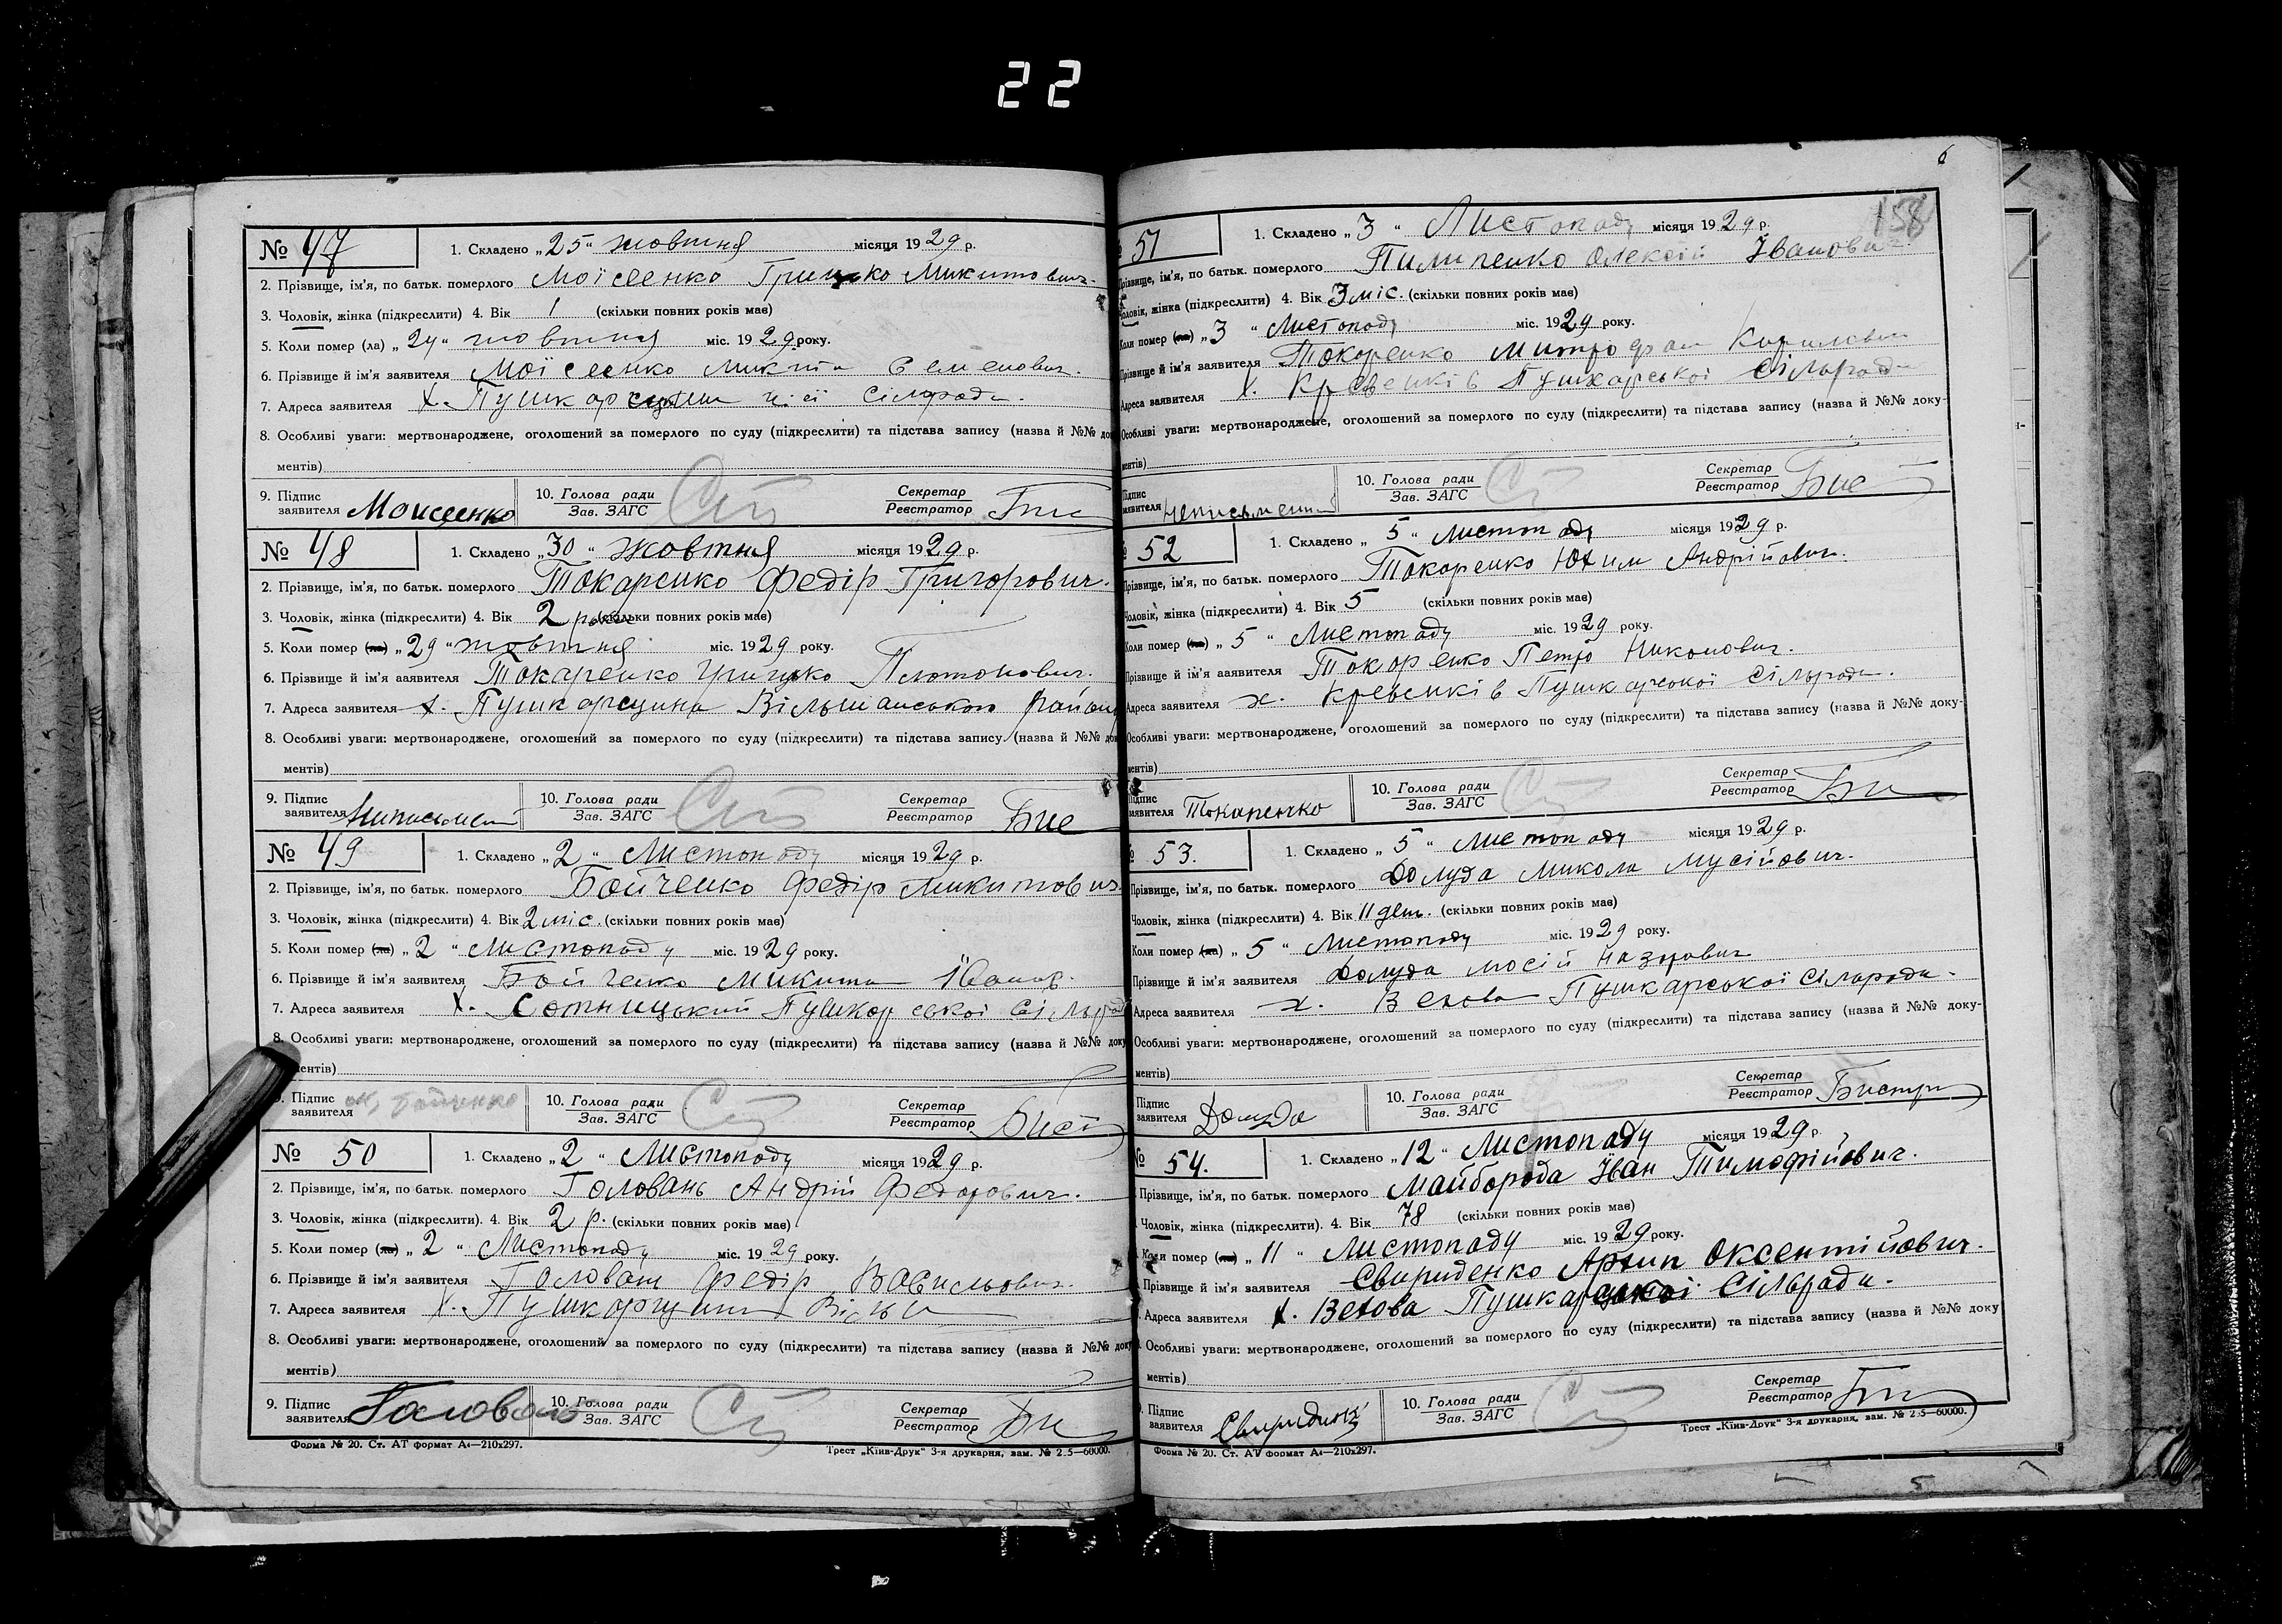 22
№ 47
1. Складено „25“ жовтня місяця 1929 р.
2. Прізвище, ім'я, по батьк. померлого Моісеенко Грицько Микитович.
3. Чоловік, жінка (підкреслити) 4. Вік 1 (скільки повних років має)
5. Коли помер (ла) „24“ жовтня міс. 1929 року.
6. Прізвище й ім'я заявителя Моісеенко Микита Семенович.
7. Адреса заявителя х. Пушкарщини цієї сільради.
8. Особливі уваги: мертвонароджене, оголошений за померлого по суду (підкреслити) та підстава запису (назва й №№ доку
ментів)
9. Підпис заявителя Моисеенко 10. Голова ради Зав. ЗАГС Секретар Реєстратор
№ 48
1. Складено „30“ жовтня місяця 1929 р.
2. Прізвище, ім'я, по батьк. померлого Токаренко Федір Григорович.
3. Чоловік, жінка (підкреслити) 4. Вік 2 роки (скільки повних років має)
5. Коли помер (ла) „29“ жовтня міс. 1929 року.
6. Прізвище й ім'я заявителя Токаренко Грицько Платонович.
7. Адреса заявителя х. Пушкарщина Вільшанського району
8. Особливі уваги: мертвонароджене, оголошений за померлого по суду (підкреслити) та підстава запису (назва й №№ доку
ментів)
9. Підпис заявителя 10. Голова ради Зав. ЗАГС Секретар Реєстратор
№ 49
1. Складено „2“ Листопаду місяця 1929 р.
2. Прізвище, ім'я, по батьк. померлого Бойченко Федір Микитович
3. Чоловік, жінка (підкреслити) 4. Вік 2 міс. (скільки повних років має)
5. Коли помер (ла) „2“ Листопаду міс. 1929 року.
6. Прізвище й ім'я заявителя Бойченко Микита Іванов.
7. Адреса заявителя х. Сотницький Пушкарської сільради
8. Особливі уваги: мертвонароджене, оголошений за померлого по суду (підкреслити) та підстава запису (назва й №№ доку
ментів)
9. Підпис заявителя Бойченко 10. Голова ради Зав. ЗАГС Секретар Реєстратор
№ 50
1. Складено „2“ Листопаду місяця 1929 р.
2. Прізвище, ім'я, по батьк. померлого Головань Андрій Федорович.
3. Чоловік, жінка (підкреслити). 4. Вік 2 р. (скільки повних років має)
5. Коли помер (ла) „2“ Листопаду міс. 1929 року.
6. Прізвище й ім'я заявителя Головань Федір Васильович.
7. Адреса заявителя х. Пушкарщини
8. Особливі уваги: мертвонароджене, оголошений за померлого по суду (підкреслити) та підстава запису (назва й №№ доку
ментів)
9. Підпис заявителя Головань 10. Голова ради Зав. ЗАГС Секретар Реєстратор
Форма № 20. Ст. АТ формат А4—210x297. Трест „Київ-Друк“ 3-я друкарня, зам. № 2.5—60000.
6
158
51
1. Складено „3“ Листопаду місяця 1929 р.
Прізвище, ім'я, по батьк. померлого Пилипенко Олексій Іванович.
Чоловік, жінка (підкреслити) 4. Вік 3 міс. (скільки повних років має)
Коли помер (ла) „3“ Листопаду міс. 1929 року.
Прізвище й ім'я заявителя Токаренко Митрофан Кирилович
Адреса заявителя х. Кревеньків Пушкарської Сільради
Особливі уваги: мертвонароджене, оголошений за померлого по суду (підкреслити) та підстава запису (назва й №№ доку-
ментів)
Підпис заявителя 10. Голова ради Зав. ЗАГС Секретар Реєстратор
52
1. Складено „5“ Листопаду місяця 1929 р.
Прізвище, ім'я, по батьк. померлого Токоренко Юхим Андрійович.
Чоловік, жінка (підкреслити) 4. Вік 5 (скільки повних років має)
Коли помер (ла) „5“ Листопаду міс. 1929 року.
Прізвище й ім'я заявителя Токоренко Петро Никонович.
Адреса заявителя х. Кревеньків Пушкарської сільради.
Особливі уваги: мертвонароджене, оголошений за померлого по суду (підкреслити) та підстава запису (назва й №№ доку-
ментів)
Підпис заявителя Токаренко 10. Голова ради Зав. ЗАГС Секретар Реєстратор
53.
1. Складено „5“ Листопаду місяця 1929 р.
Прізвище, ім'я, по батьк. померлого Долуда Микола Мусійович.
Чоловік, жінка (підкреслити) 4. Вік 11 ден. (скільки повних років має)
Коли помер (ла) „5“ Листопаду міс. 1929 року.
Прізвище й ім'я заявителя Долуда Мосій Назарович
Адреса заявителя х. Вехова Пушкарської сільради.
Особливі уваги: мертвонароджене, оголошений за померлого по суду (підкреслити) та підстава запису (назва й №№ доку-
ментів)
Підпис заявителя Долуда 10. Голова ради Зав. ЗАГС Секретар Реєстратор
№ 54.
1. Складено „12“ Листопаду місяця 1929 р.
Прізвище, ім'я, по батьк. померлого Майборода Іван Тимофійович.
Чоловік, жінка (підкреслити). 4. Вік 78 (скільки повних років має)
Коли помер (ла) „11“ Листопаду міс. 1929 року.
Прізвище й ім'я заявителя Свириденко Архип Оксентійович.
Адреса заявителя х. Вехова Пушкарської Сільради.
Особливі уваги: мертвонароджене, оголошений за померлого по суду (підкреслити) та підстава запису (назва й №№ доку
ментів)
Підпис заявителя 10. Голова ради Зав. ЗАГС Секретар Реєстратор
Форма № 20. Ст. АТ формат А4—210x297. Трест „Київ-Друк“ 3-я друкарня, зам. № 2.5—60000.